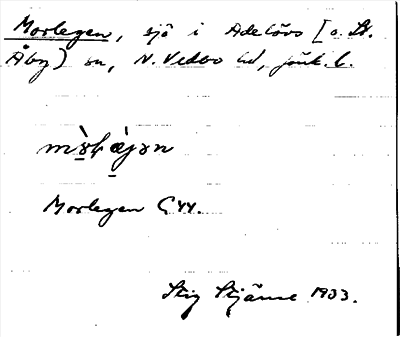 Morlegen, sjö i Adelövs [o. St.
Åby] sn, N. Vedbo hd, jönk. l.
Morlegen G44.
Stig Stjärne 1933.